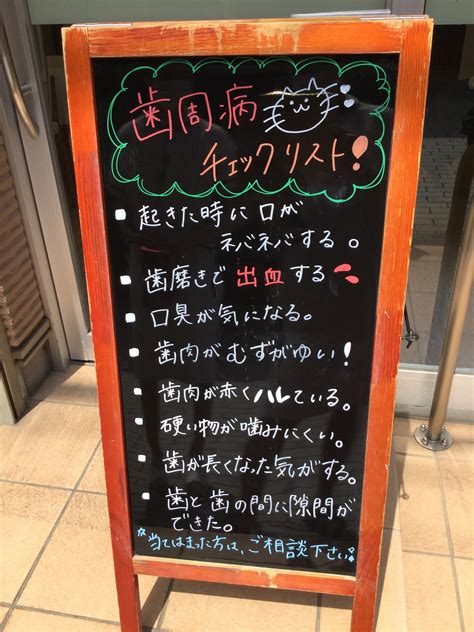 歯周病
チェックリスト!
起きた時に口が
ネバネバする。
歯磨きで出血する
口臭が気になる。
歯肉がむずがゆい!
歯肉が赤くハレている。
硬い物が噛みにくい。
歯が長くなった気がする。
歯と歯の間に隙間が
できた。
☆当てはまった方は、ご相談下さい☆